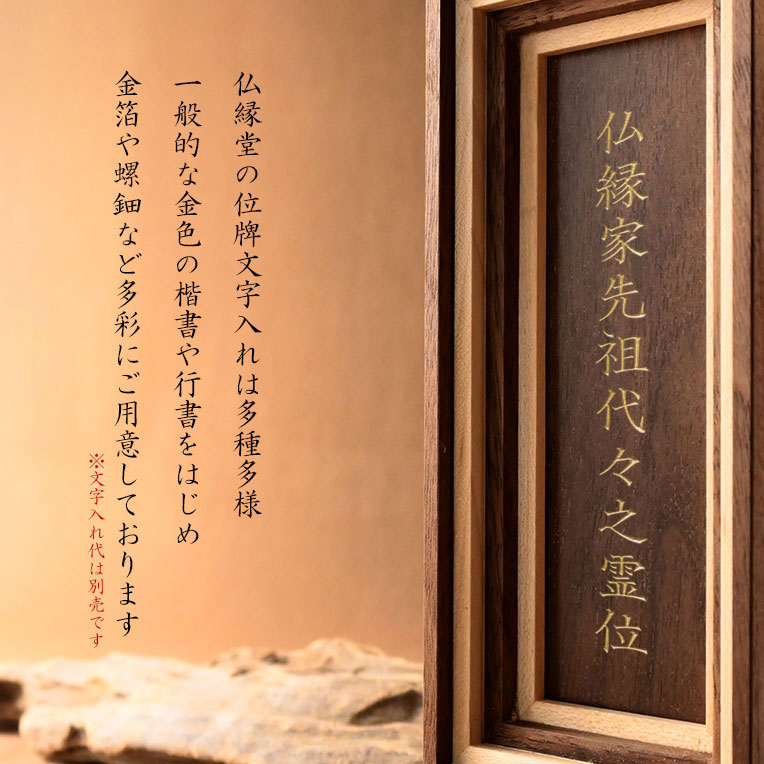 仏縁堂の位牌文字入れは多種多様
一般的な金色の楷書や行書をはじめ
金箔や螺鈿など多彩にご用意しております
※文字入れ代は別売です
仏縁家先祖代々之霊位